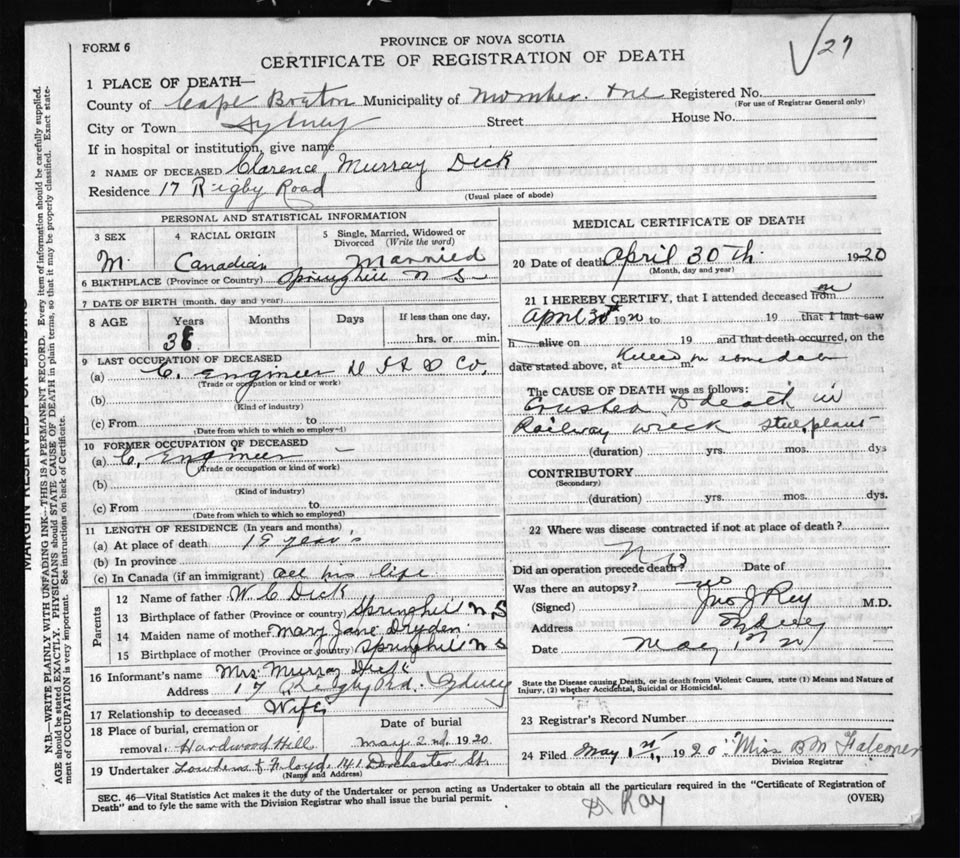 27
PROVINCE OF NOVA SCOTIA
FORM 6
CERTIFICATE OF REGISTRATION OF DEATH
1 PLACE OF DEATH—
County of Cape Breton Municipality of Number. One Registered No.
(For use of Registrar General only)
City or Town Sydney Street House No.
If in hospital or institution, give name
2 NAME OF DECEASED Clarence Murray Dick
Residence 17 Rigby Road
(Usual place of abode)
PERSONAL AND STATISTICAL INFORMATION
3 SEX 4 RACIAL ORIGIN 5 Single, Married, Widowed or Divorced (Write the word)
M. Canadian Married
6 BIRTHPLACE (Province or Country) Springhill N S
7 DATE OF BIRTH (month, day and year)
8 AGE Years Months Days If less than one day,
hrs. or min.
9 LAST OCCUPATION OF DECEASED
(a) C. Engineer Co.
(Trade or occupation or kind of work)
(b)
(Kind of industry)
(c) From to
(Date from which to which so employed)
10 FORMER OCCUPATION OF DECEASED
(a) C. Engineer
(Trade or occupation or kind of work)
(b)
(Kind of industry)
(c) From to
(Date from which to which so employed)
11 LENGTH OF RESIDENCE (In years and months)
(a) At place of death 19 year's
(b) In province
(c) In Canada (if an immigrant) all his life
Parents
12 Name of father W. C Dick
13 Birthplace of father (Province or country) Springhill N S
14 Maiden name of mother Mary Jane Dryden
15 Birthplace of mother (Province or country) Springhill N S
16 Informant's name Mrs Murray Dick
Address 17 Rigby Rd. Sydney
17 Relationship to deceased Wife
18 Place of burial, cremation or Date of burial
removal, Hardwood Hill May 2nd, 1920
19 Undertaker Lowden & Floyd, 141 Dorchester St.
(Name and Address)
MEDICAL CERTIFICATE OF DEATH
20 Date of death April 30th. 1920
(Month, day and year)
21 I HEREBY CERTIFY, that I attended deceased from on
April 30th 1920 to 19 that I last saw
h alive on 19 and that death occurred, on the
date stated above, at Killed m.
The CAUSE OF DEATH was as follows:
Crushed to death in
Railway wreck steel plant
(duration) yrs. mos. dys
CONTRIBUTORY
(Secondary)
(duration) yrs. mos. dys.
22 Where was disease contracted if not at place of death?
Did an operation precede death? No Date of
Was there an autopsy? no
(Signed) Jno J Roy M.D.
Address Sydney
Date May 1
State the Disease causing Death, or in death from Violent Causes, state (1) Means and Nature of
Injury, (2) whether Accidental, Suicidal or Homicidal.
23 Registrar's Record Number
24 Filed May 1st, 1920 Miss B M Falconer
Division Registrar
SEC. 46—Vital Statistics Act makes it the duty of the Undertaker or person acting as Undertaker to obtain all the particulars required in the "Certificate of Registration of
Death" and to fyle the same with the Division Registrar who shall issue the burial permit.
(OVER)
Dr Ray
MARGIN RESERVED FOR BINDING
N.B.—WRITE PLAINLY WITH UNFADING INK—THIS IS A PERMANENT RECORD. Every item of information should be carefully supplied.
AGE should be stated EXACTLY. PHYSICIANS should STATE CAUSE OF DEATH in plain terms, so that it may be properly classified. Exact statement of OCCUPATION is very important. See instructions on back of Certificate.